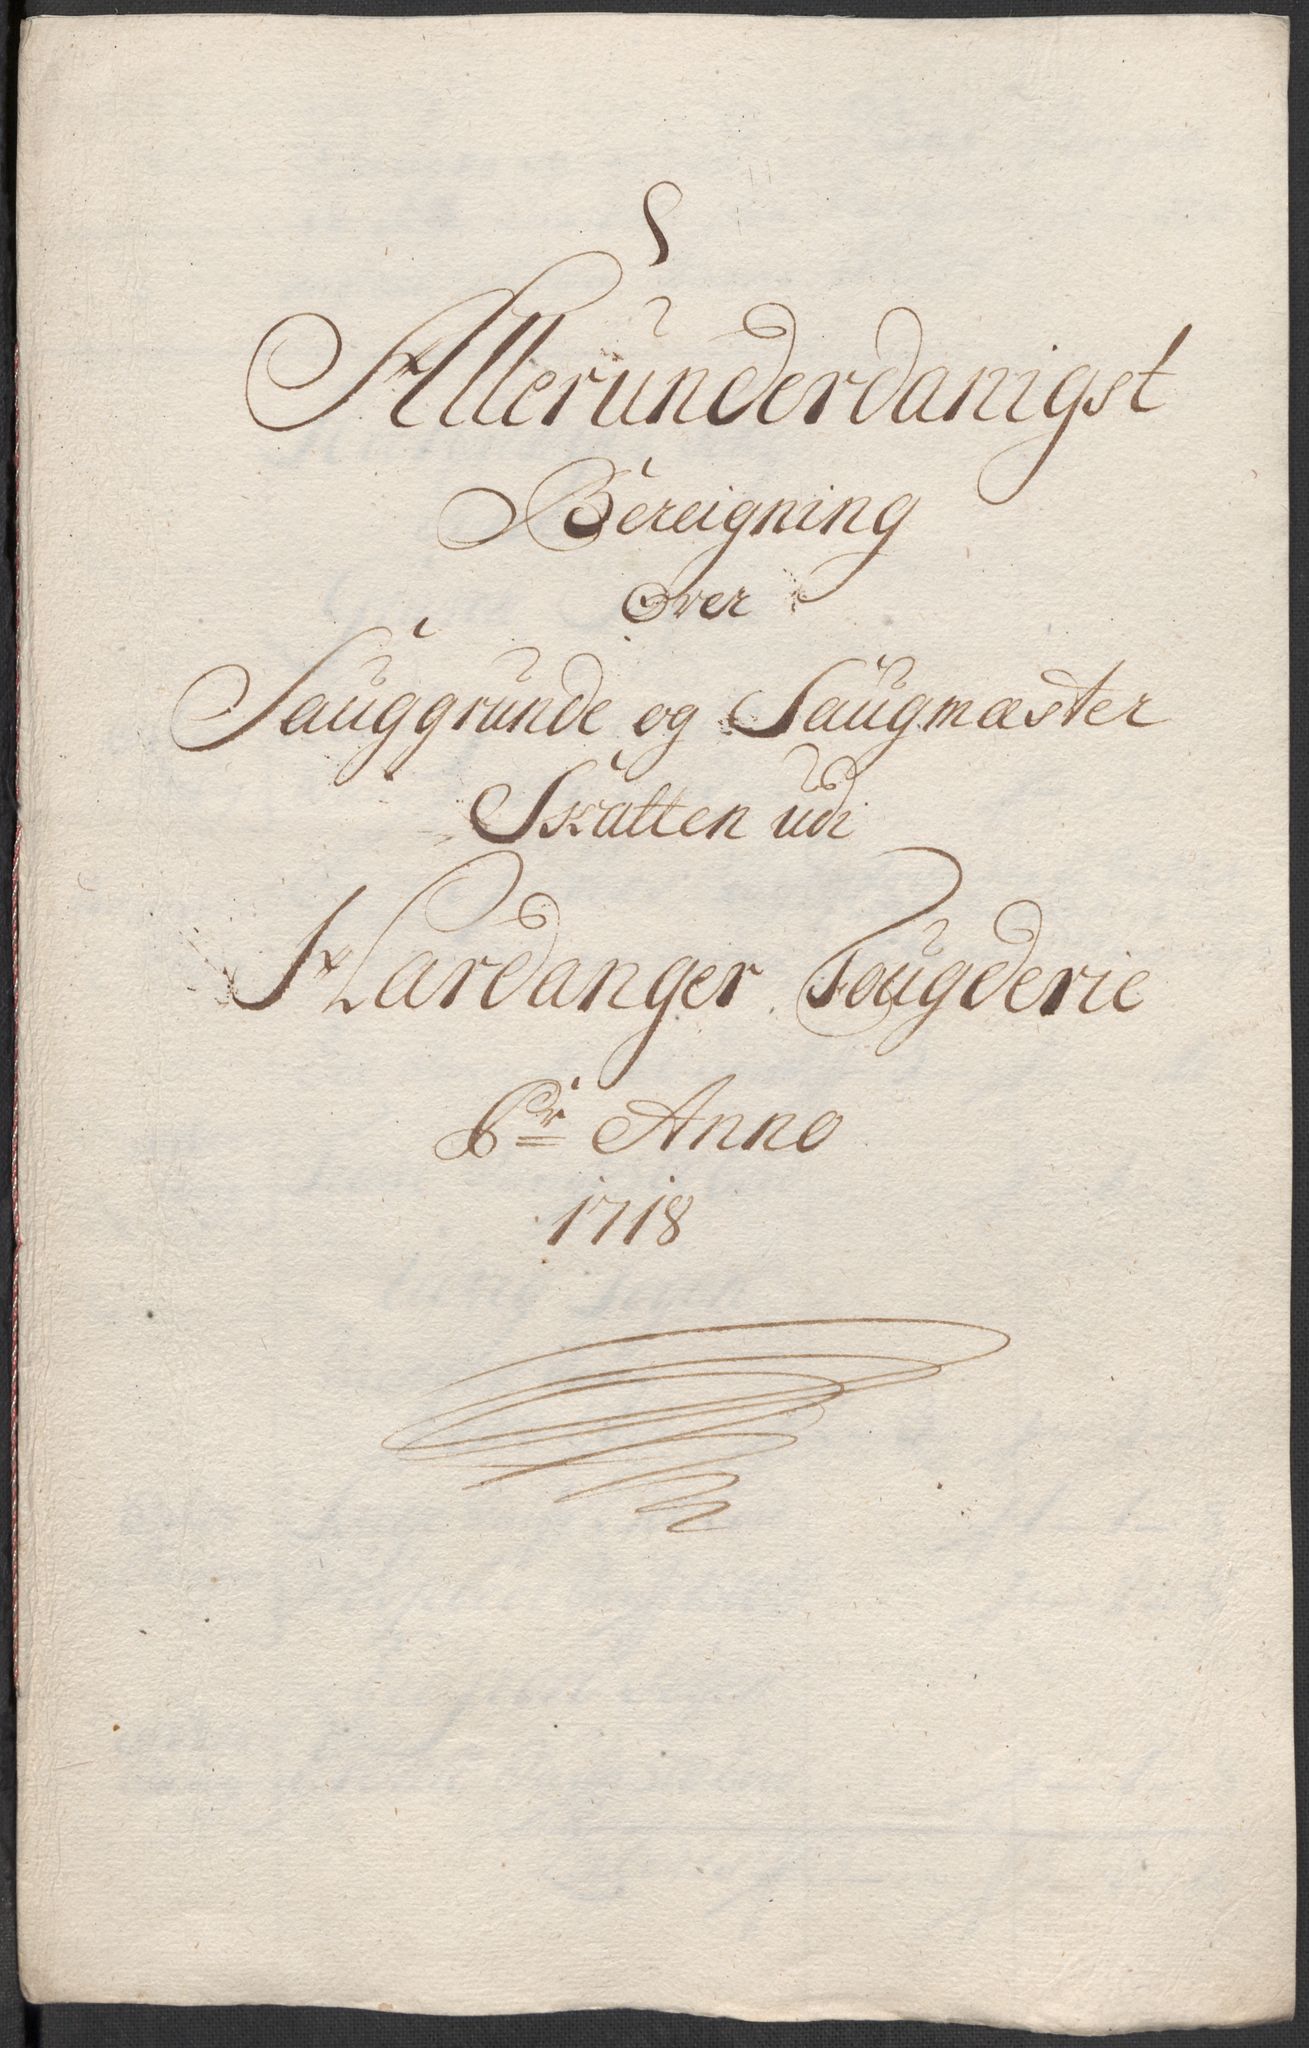 Allerunderdanigst
Bereigning
Over
Sauggrunde og Saugmæster
Skatten udi
Hardanger Fougderie
Pr Anno
1718